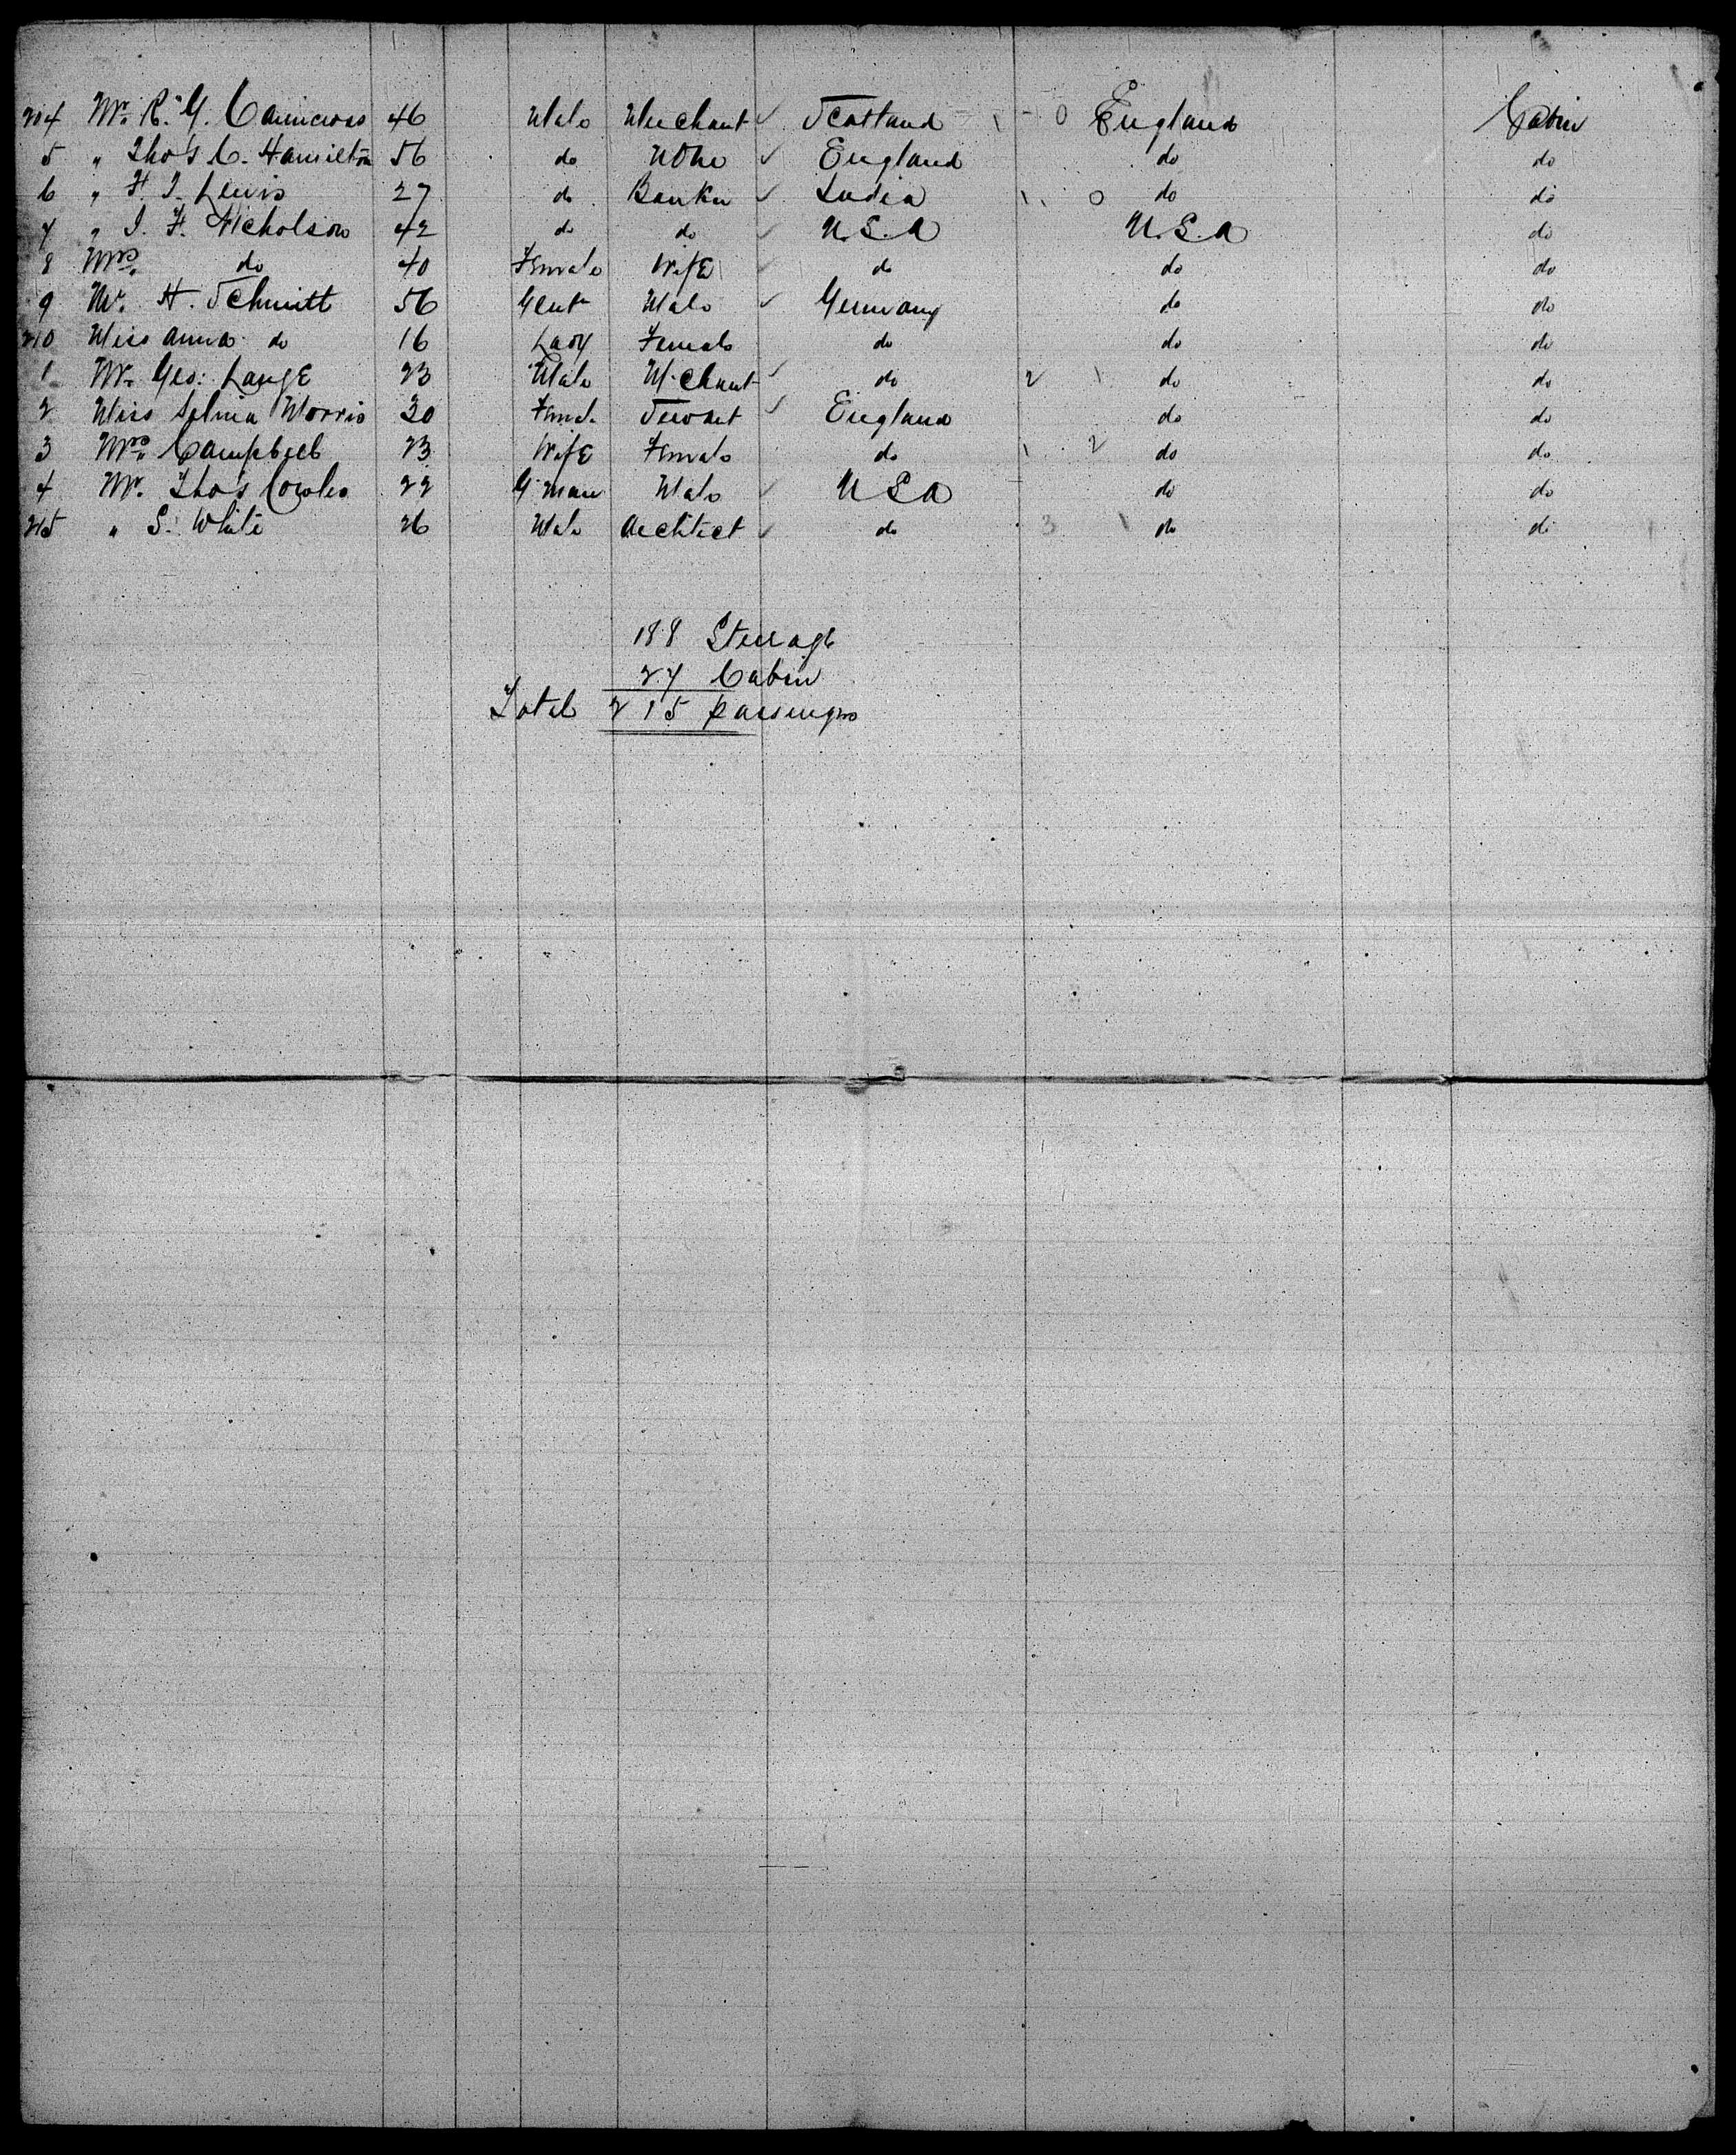 204 Mr. R. G. Cairncross 46 Male Merchant ✓ Scotland 1 - 0 England Cabin
5 " Tho's C. Hamilton 56 do None ✓ England do do
6 " F. J. Lewis 27 do Banker ✓ India 1 0 do do
7 " J. F. Nicholson 42 do do ✓ U.S.A U.S.A do
8 Mrs. do 40 Female Wife ✓ do do do
9 Mr. H. Schmitt 56 Gent Male ✓ Germany do do
210 Miss Anna do 16 Lady Female do do do
1 Mr. Geo: Lange 23 Male M.chant ✓ do 2 1 do do
2 Miss Selina Morris 30 Femal. Servant ✓ England do do
3 Mrs. Campbell 23 Wife Female do 1 2 do do
4 Mr. Tho's Cowles 22 G.man Male ✓ U S A do do
215 " S. White 26 Male Architect ✓ do 3 1 do do
188 Steerage
27 Cabin
Total 215 passengrs